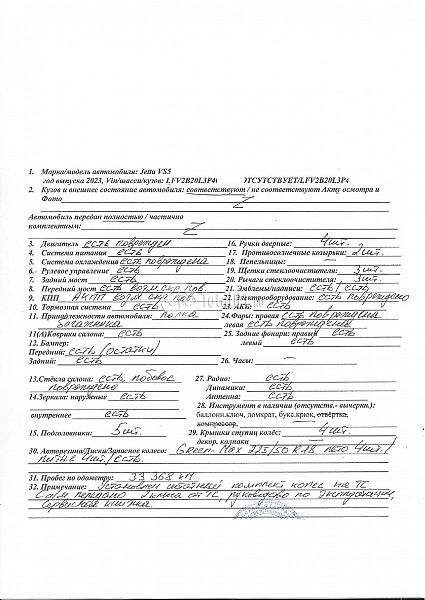 1. Марка/модель автомобиля: Jetta VS5
год выпуска 2023, Vin/шасси/кузов: LFV2B20L3P4 ОТСУТСТВУЕТ/LFV2B20L3P4
2. Кузов и внешнее состояние автомобиля: соответствуют / не соответствуют Акту осмотра и
Фото Z
Автомобиль передан полностью / частично
комплектным: Z
3. Двигатель есть поврежден
4. Система питания есть
5. Система охлаждения есть повреждена
6. Рулевое управление есть
7. Задний мост есть
8. Передний мост есть возм. скр. пов.
9. КПП АКПП возм. скр. пов.
10. Тормозная система есть
11. Принадлежности автомобиля: полка
багажника
11(А)Коврики салона: есть
12. Бампер:
Передний: есть (остатки)
Задний: есть
16. Ручки дверные: 4 шт.
17. Противосолнечные козырьки: 2 шт.
18. Пепельницы: —
19. Щетки стеклоочистителя: 3 шт.
20. Рычаги стеклоочистителя: 3 шт.
21. Эмблемы/надписи: есть / есть
22. Электрооборудование: есть повреждено
23. АКБ: есть
24. Фары: правая есть повреждена
левая есть повреждена
25. Задние фонари: правый есть
левый есть
26. Часы: —
13. Стёкла салона: есть, лобовое
повреждено
14. Зеркала: наружные есть
внутреннее есть
15. Подголовники: 5 шт.
27. Радио: есть
Динамики: есть
Антенна: есть
28. Инструмент в наличии (отсутств.- вычеркн.):
баллонн.ключ, домкрат, букс.крюк, отвёртка,
компрессор,
29. Крышки ступиц колёс: 4 шт.
декор. колпаки —
30. Авторезина/Диски/Запасное колесо: Green-Max 225/50 R18 лето 4 шт. /
литьё 4 шт. / есть.
31. Пробег по одометру: 33 368 км
32. Примечание: Установлен штатный комплект колес на ТС
С а/м передано ключа от ТС, руководство по эксплуатации,
сервисная книжка.